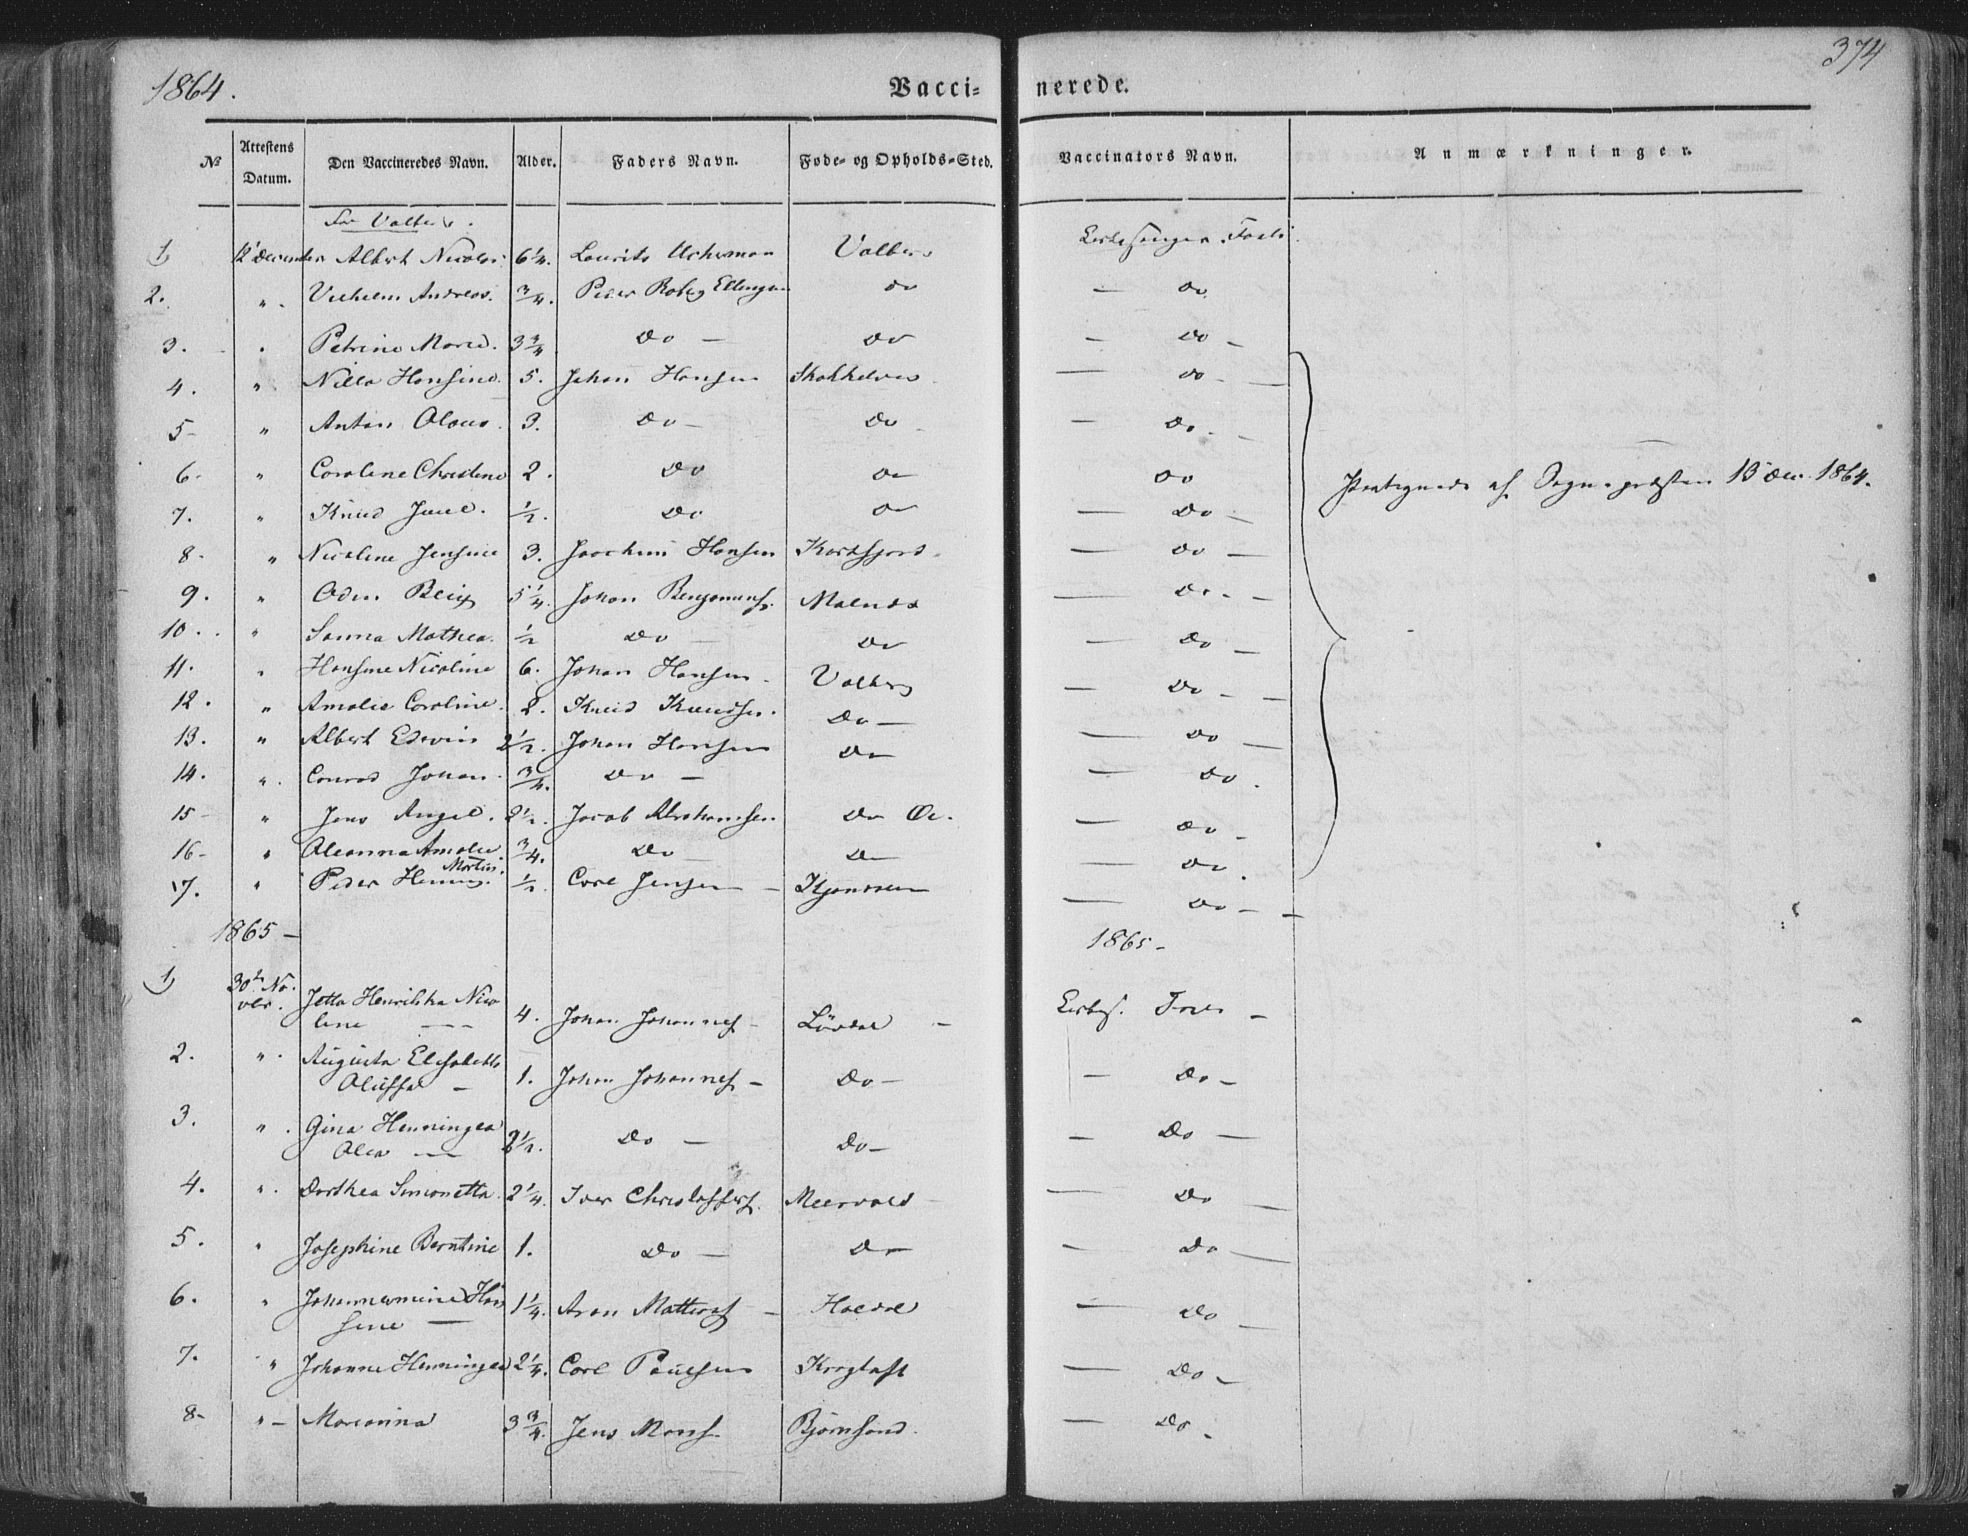 1864.
Vaccinerede.
374
№ Attestens Datum. Den Vaccineredes Navn. Alder. Faders Navn. Føde- og Opholds-Sted. Vaccinators Navn. Anmærkninger.
For Valberg.
1) 12 December Albert Nicolai 6 1/4. Laurits Valberg Kirkesanger
2. " Vilhelm Andreas. 3/4. Peder do — do
3. " Petrine Marie. 3 3/4 do — do — do —
4. " Nilla Hansine. 5. Johan Hansen — do —
5 - " Anton Olaus. 3. do — do — do —
6. " Caroline Christine 2. do do do
7. " Knud Juul. 1/2. do do — do —
8. " Nicoline Jensine 3. Joachim Hansen — do —
9. " Odin Berg 5 1/4. Johan Benjamins. — do —
10. " Sanna Mathea. 1/2 do — do — do —
11. " Hansine Nicoline 6. Johan Hansen. Valberg — do —
12. " Amalie Caroline. 2. Knud Knudsen. do — — do —
13. " Albert Edvin 2 1/2. Johan Hansen do — do
14. " Conrad Johan. 3/4. do — — do.
15 - " Jens Angel. 2 1/2. Jacob Abrahamsen do — do —
16 - " Oleanna Amalie 3/4. do — do — do.
17. " Peder Henning Martin. 1/2. Carl Jensen — — do —
Paategnede af Sognepræsten 13 Dec. 1864.
1865 —
1865 -
1) 30te November. Jetta Henrikka Nicoline — 4. Johan Johannes — Lovdal — Kirkes.
2. " Augusta Elisabeth Olufsa — 1. Johan Johannes — do — — do —
3. " Gina Henningea Olea — 2 1/2. do — do — — do —
4. " Dorthea Simonetta. 2 1/4. Iver Christoffers. Meervold — do
5. " Josephine Berntine 1. do — do — do
6. " Hansine — 1 1/4. Aron — — do
7. " Johanne Henningea 2 1/4. Carl Paulsen — do —
8 - " — Marianna 3 3/4. Jens Mons. Bjørnsand. — do.